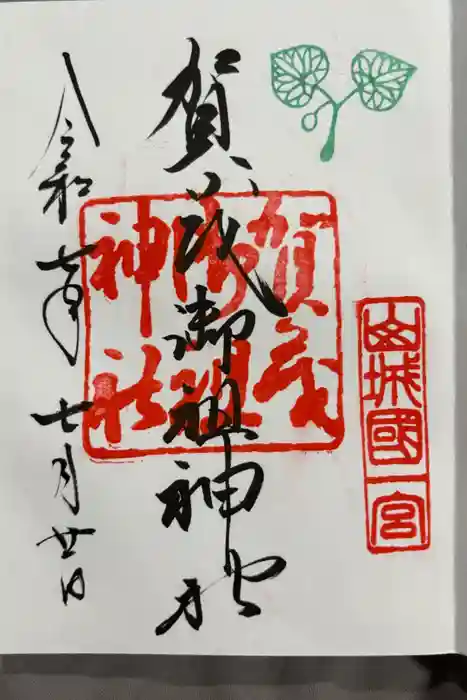 山城國一宮
賀茂御祖神社
賀茂
御祖
神社
令和七年七月廿日